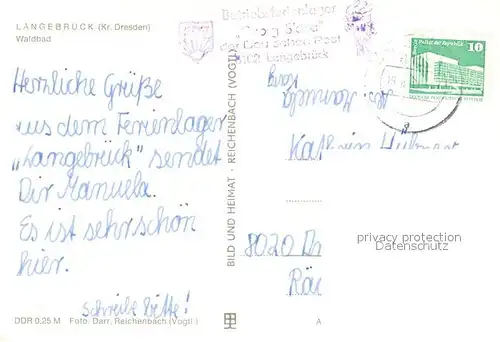 LANGEBRÜCK (Kr. Dresden)
Waldbad
Herzliche Grüße
aus dem Ferienlager
„Langebrück" sendet
Dir Manuela.
Es ist sehr schön
hier.
Schreibe bitte!
DDR 0,25 M Foto: Darr, Reichenbach (Vogtl.)
BILD UND HEIMAT · REICHENBACH (VOGTL)
Betriebsferienlager
der Deutschen Post
Langebrück
Palast der Republik
10
8020
privacy protection
Datenschutz
A